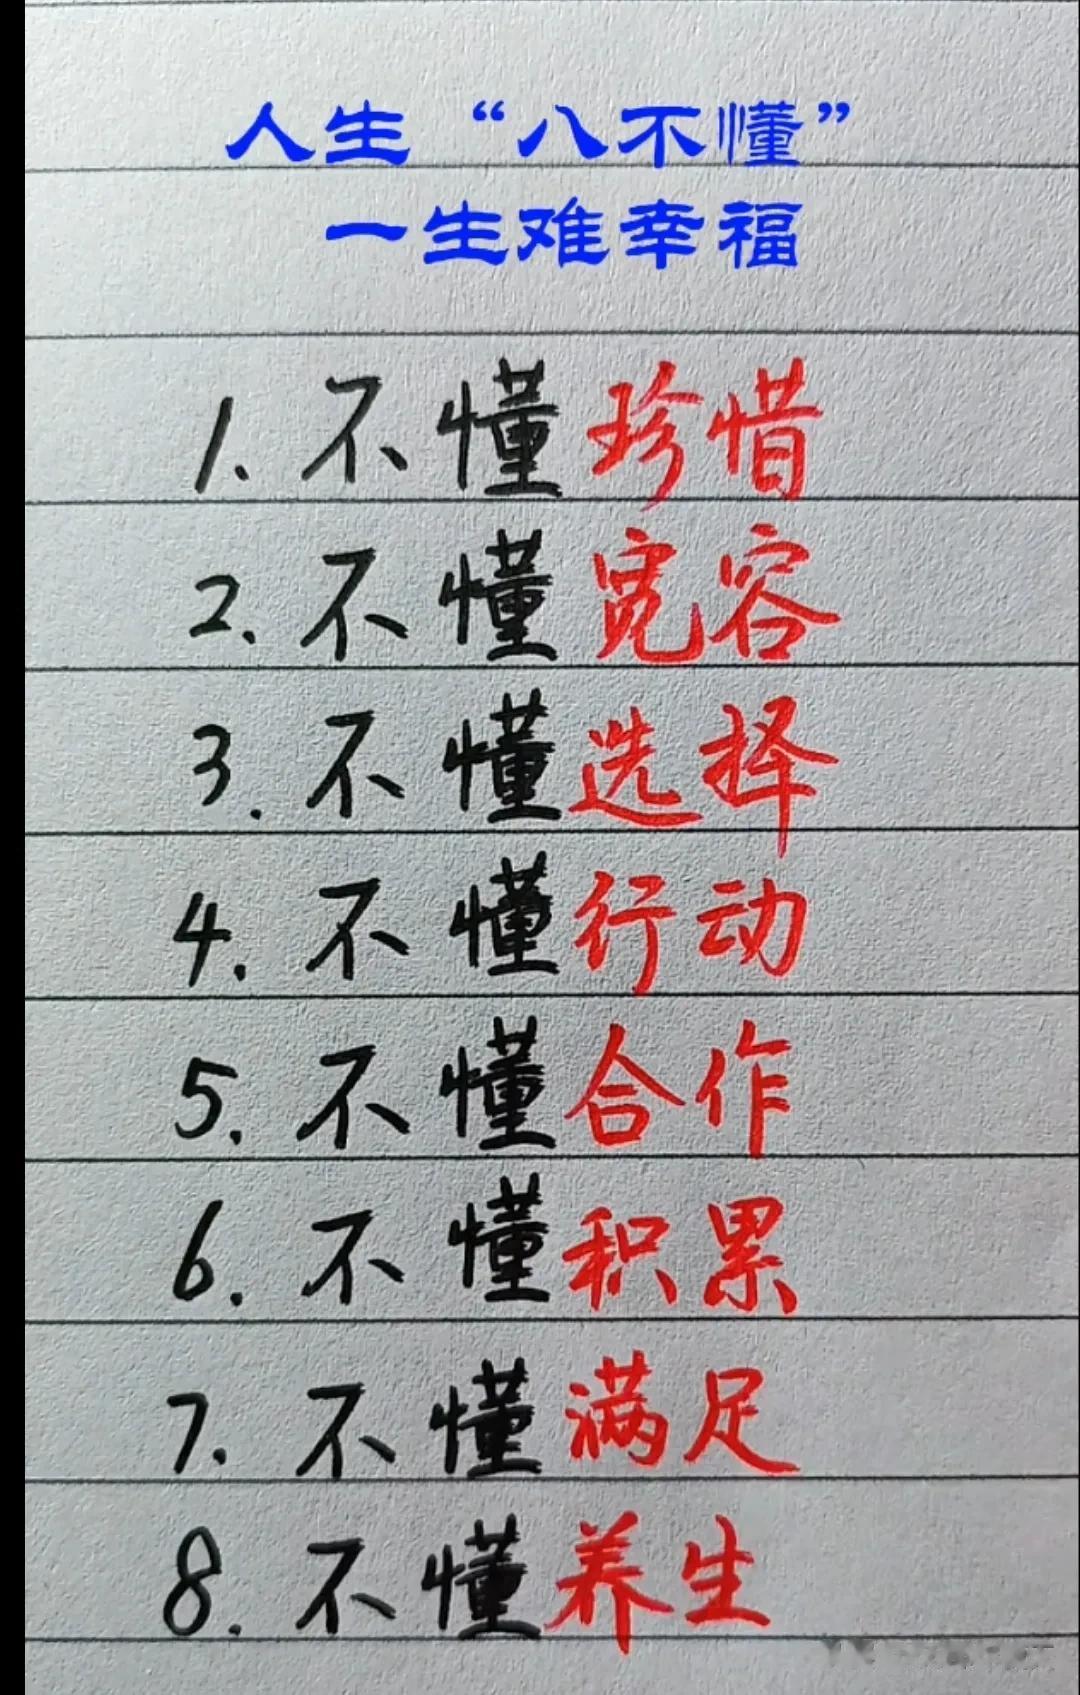 人生“八不懂”
一生难幸福
1. 不懂珍惜
2. 不懂宽容
3. 不懂选择
4. 不懂行动
5. 不懂合作
6. 不懂积累
7. 不懂满足
8. 不懂养生